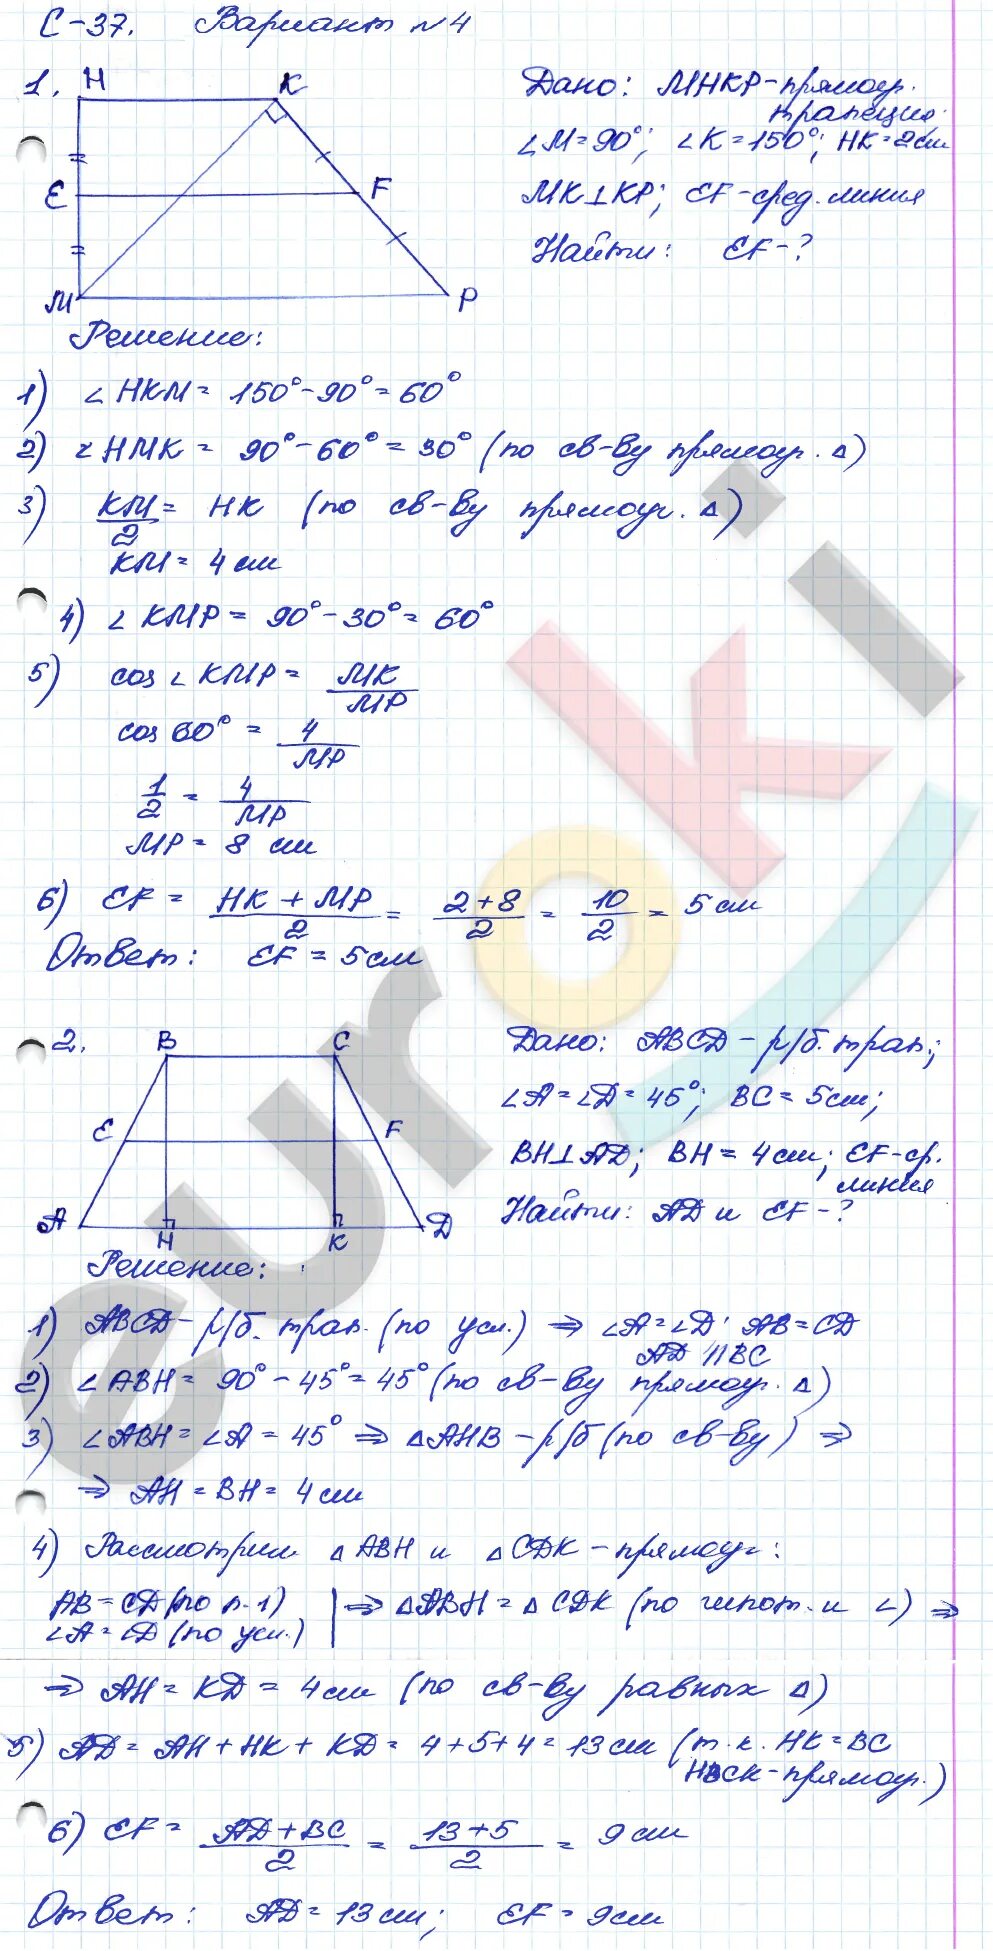 С-37. Вариант №4
1.
H
K
E
F
M
P
Дано: MHKP-прямоуг.
трапеция
∠M=90°; ∠K=150°; HK=2см
MK⊥KP; EF-сред. линия
Найти: EF-?
Решение:
1) ∠HKM= 150°-90°=60°
2) ∠HMK = 90°-60°=30° (по св-ву прямоуг. Δ)
3) KM/2 = HK (по св-ву прямоуг. Δ)
KM= 4 см
4) ∠KMP= 90°-30°= 60°
5) cos∠KMP= MK/MP
cos 60° = 4/MP
1/2 = 4/MP
MP= 8 см
6) EF = (HK + MP)/2 = (2+8)/2 = 10/2 = 5 см
Ответ: EF = 5 см
2.
B
C
E
F
A
H
K
D
Дано: ABCD-р/б. трап.;
∠A=∠D=45°; BC=5см;
BH⊥AD; BH=4см; EF-ср.
линия
Найти: AD и EF-?
Решение:
1) ABCD-р/б. трап. (по усл.) ⇒ ∠A=∠D; AB=CD
AD || BC
2) ∠ABH= 90°-45°=45° (по св-ву прямоуг. Δ)
3) ∠ABH=∠A=45° ⇒ ΔAHB-р/б (по св-ву) ⇒
⇒ AH=BH= 4 см
4) Рассмотрим ΔABH и ΔCDK-прямоуг:
AB=CD (по п.1) | ⇒ ΔABH=ΔCDK (по гипот. и ∠) ⇒
∠A=∠D (по усл.)
⇒ AH=KD=4см (по св-ву равных Δ)
5) AD= AH+HK+KD= 4+5+4=13см (т.к. HK=BC
HBCK-прямоуг.)
6) EF= (AD+BC)/2 = (13+5)/2 = 9 см
Ответ: AD=13см; EF=9см
euroki